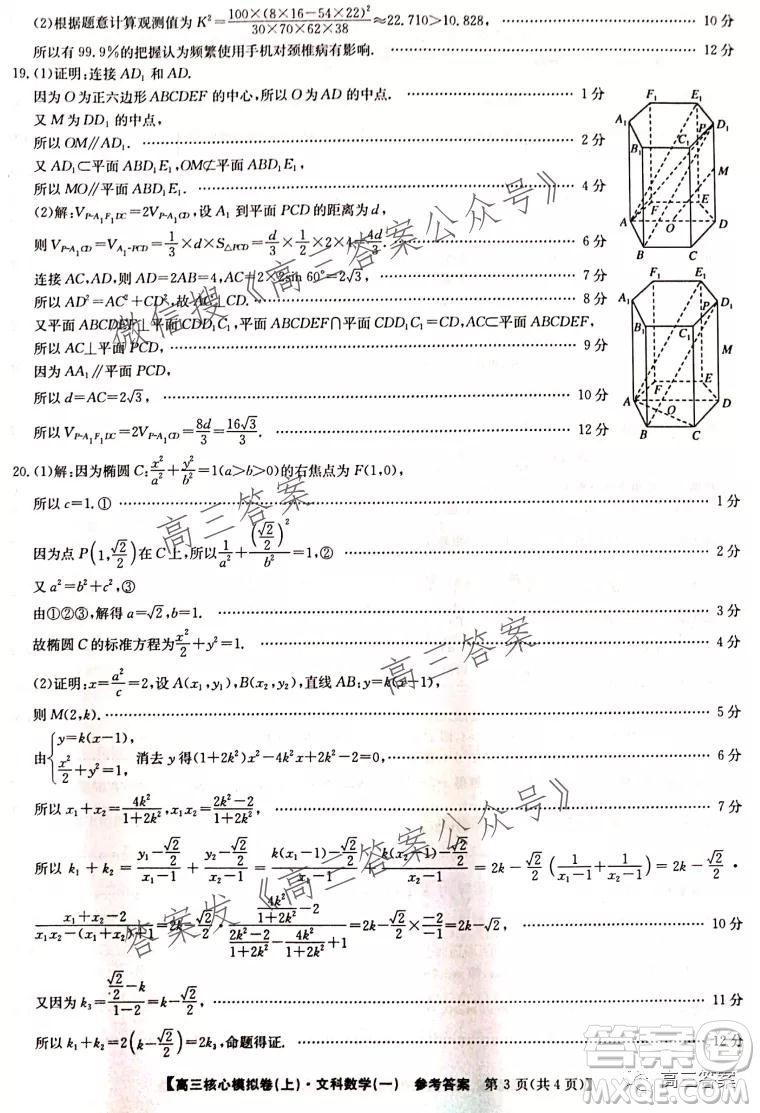 (2)根据题意计算观测值为 K²=100×(8×16-54×22)²/30×70×62×38≈22.710>10.828, 10 分
所以有 99.9%的把握认为频繁使用手机对颈椎病有影响. 12 分
19. (1)证明:连接 AD₁ 和 AD.
因为 O 为正六边形 ABCDEF 的中心,所以 O 为 AD 的中点. 1 分
又 M 为 DD₁ 的中点,
所以 OM∥AD₁. 2 分
又 AD₁⊂平面 ABD₁E₁,OM⊄平面 ABD₁E₁,
所以 MO∥平面 ABD₁E₁. 4 分
(2)解:V_{P-A₁F₁DC}=2V_{P-A₁CD},设 A₁ 到平面 PCD 的距离为 d,
则 V_{P-A₁CD}=V_{A₁-PCD}=1/3×d×S_{△PCD}=d/3×1/2×2×4=4d/3. 6 分
连接 AC,AD,则 AD=2AB=4,AC=2×2sin 60°=2√3, 7 分
所以 AD²=AC²+CD²,故 AC⊥CD. 8 分
又平面 ABCDEF⊥平面 CDD₁C₁,平面 ABCDEF∩平面 CDD₁C₁=CD,AC⊂平面 ABCDEF,
所以 AC⊥平面 PCD, 9 分
因为 AA₁∥平面 PCD,
所以 d=AC=2√3, 10 分
所以 V_{P-A₁F₁DC}=2V_{P-A₁CD}=8d/3=16√3/3. 12 分
F₁ E₁
A₁ P D₁
B₁ C₁
M
F E
A O D
B C
F₁ E₁
A₁ P D₁
B₁ C₁
M
F E
A O D
B C
20. (1)解:因为椭圆 C:x²/a²+y²/b²=1(a>b>0)的右焦点为 F(1,0),
所以 c=1.① 1 分
因为点 P(1,√2/2)在 C 上,所以1/a²+(√2/2)²/b²=1,② 2 分
又 a²=b²+c²,③
由①②③,解得 a=√2,b=1. 3 分
故椭圆 C 的标准方程为x²/2+y²=1. 4 分
(2)证明:x=a²/c=2,设 A(x₁,y₁),B(x₂,y₂),直线 AB:y=k(x-1),
则 M(2,k). 5 分
由{y=k(x-1), x²/2+y²=1, 消去 y 得(1+2k²)x²-4k²x+2k²-2=0, 6 分
所以 x₁+x₂=4k²/1+2k²,x₁x₂=2k²-2/1+2k², 7 分
所以 k₁+k₂=(y₁-√2/2)/(x₁-1)+(y₂-√2/2)/(x₂-1)=(k(x₁-1)-√2/2)/(x₁-1)+(k(x₂-1)-√2/2)/(x₂-1)=2k-√2/2(1/(x₁-1)+1/(x₂-1))=2k-√2/2·
(x₁+x₂-2)/(x₁x₂-(x₁+x₂)+1)=2k-√2/2·(4k²/(1+2k²)-2)/((2k²-2)/(1+2k²)-4k²/(1+2k²)+1)=2k-√2/2×-2/-1=2k-√2, 10 分
又因为 k₃=(√2/2-k)/(1-2)=k-√2/2, 11 分
所以 k₁+k₂=2(k-√2/2)=2k₃,命题得证. 12 分
【高三核心模拟卷(上)·文科数学(一) 参考答案 第 3 页(共 4 页)】
微信搜《高三答案公众号》
高三答案
高三答案
答案发《高三答案公众号》
答案圈
高三答案